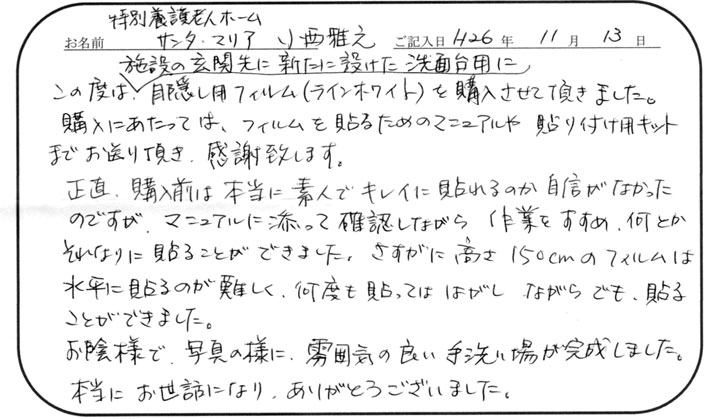 特別養護老人ホーム
お名前 サンタ・マリア 小西雅之 ご記入日 H26 年 11 月 13 日
施設の玄関先に新たに設けた洗面台用に
この度は、目隠し用フィルム(ラインホワイト)を購入させて頂きました。
購入にあたっては、フィルムを貼るためのマニュアルや貼り付け用キット
までお送り頂き、感謝致します。
正直、購入前は本当に素人でキレイに貼れるのか自信がなかった
のですが、マニュアルに添って確認しながら作業をすすめ、何とか
それなりに貼ることができました。さすがに高さ150cmのフィルムは
水平に貼るのが難しく、何度も貼ってははがしながらでも、貼る
ことができました。
お陰様で、写真の様に、雰囲気の良い手洗い場が完成しました。
本当にお世話になり、ありがとうございました。